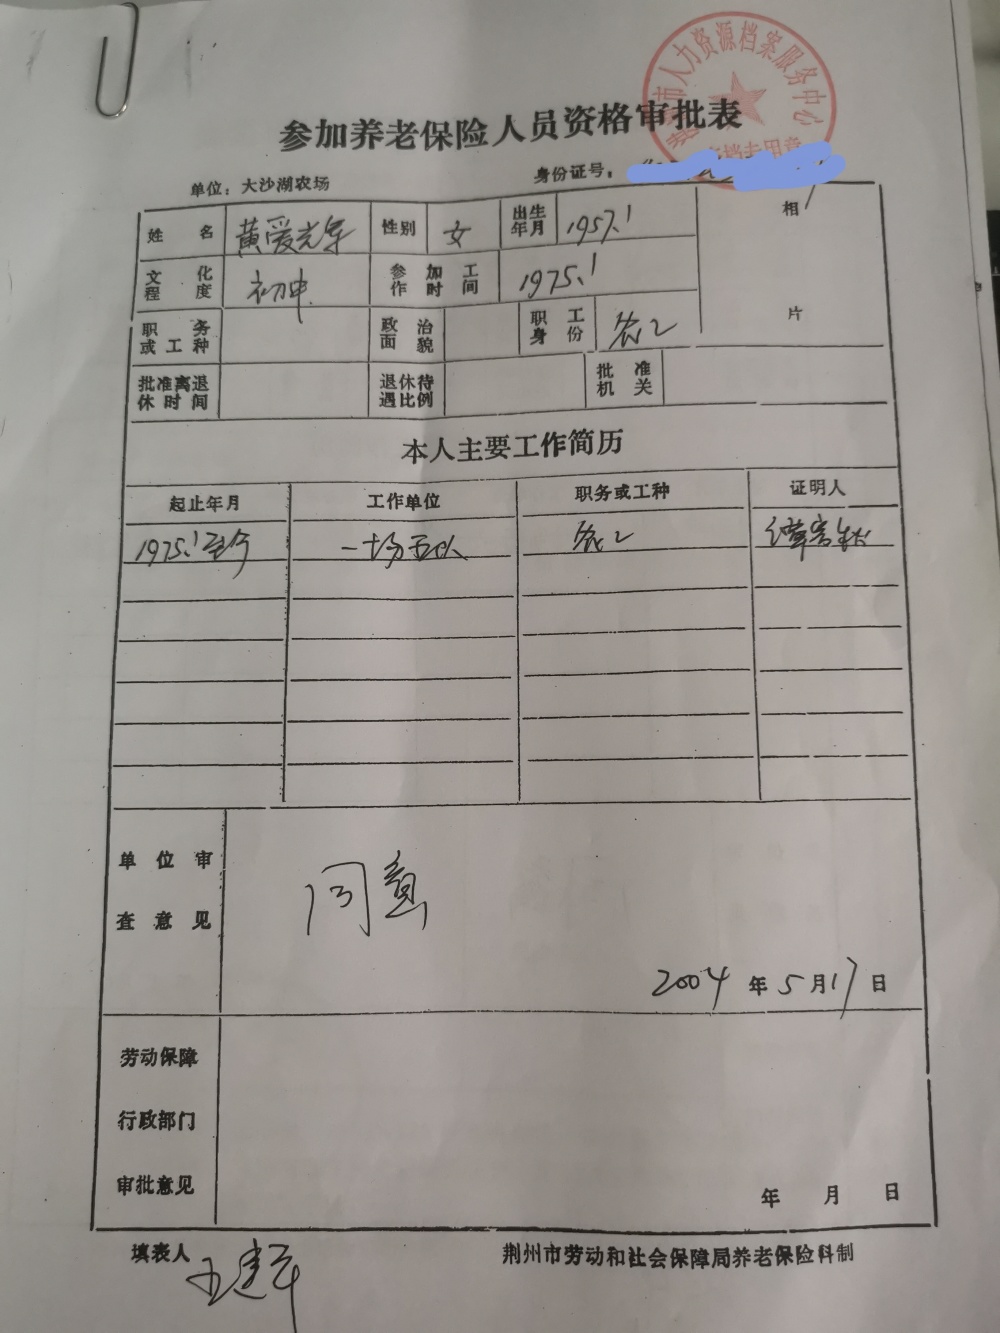 市人力资源档案服务中心
档专用章
参加养老保险人员资格审批表
单位：大沙湖农场 身份证号：
姓名 黄爱 性别 女 出生年月 1957.1 相片
文化程度 初中 参加工作时间 1975.1
职务或工种 政治面貌 职工身份 农工
批准离退休时间 退休待遇比例 批准机关
本人主要工作简历
起止年月 工作单位 职务或工种 证明人
1975.1至今 一场五队 农工
单位审查意见 同意
2004年5月17日
劳动保障行政部门审批意见
年 月 日
填表人 王建军 荆州市劳动和社会保障局养老保险科制